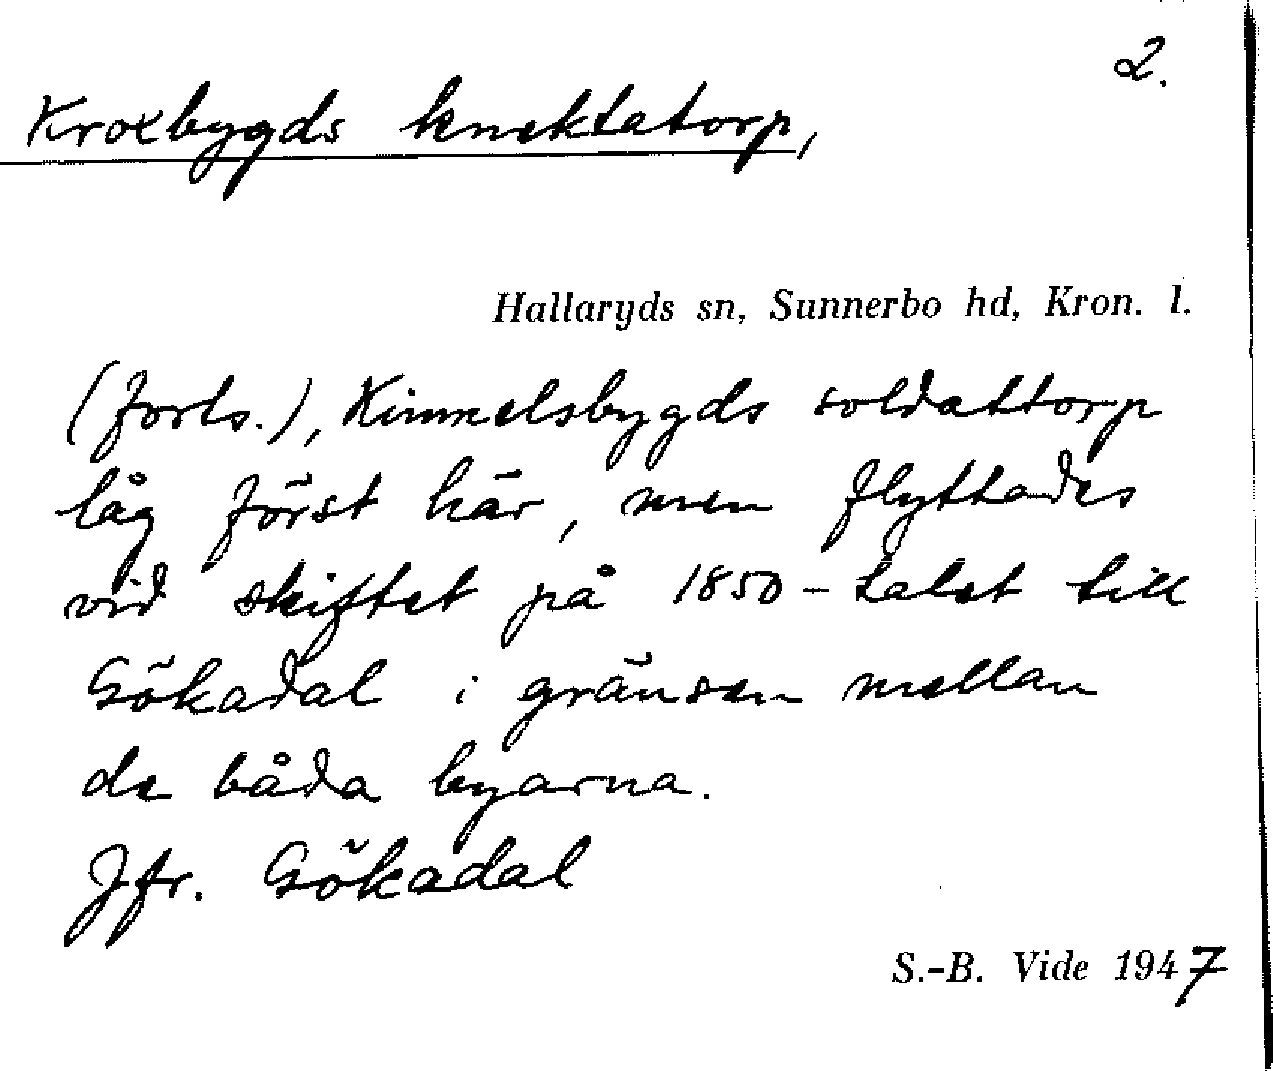 2.
Kroxbygds knektatorp,
Hallaryds sn, Sunnerbo hd, Kron. l.
(forts.), Kimmelsbygds soldattorp
låg först här, men flyttades
vid skiftet på 1850-talet till
Gökadal i gränsen mellan
de båda byarna.
Jfr. Gökadal
S.-B. Vide 1947